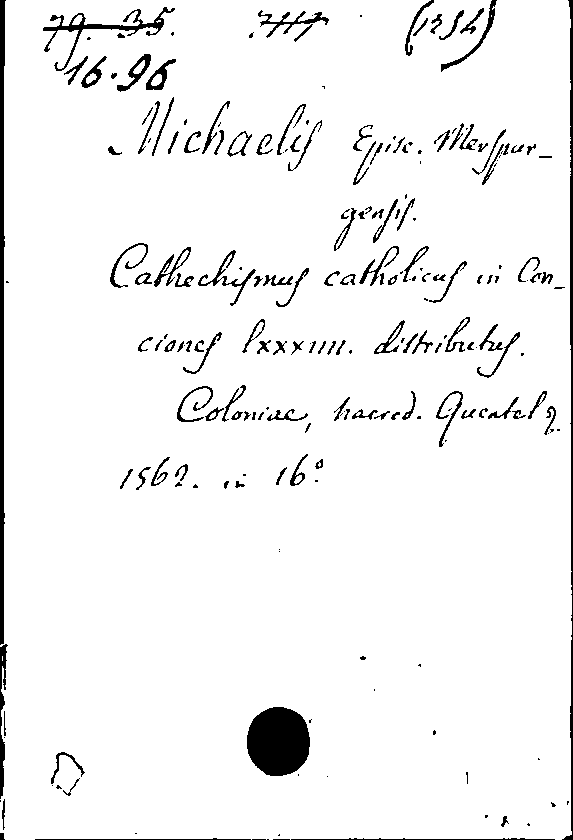 79. 35. 7117 (1254)
16.96
Michaelis Episc. Merspur-
gensis.
Cathechismus catholicus in Con-
ciones lxxxiiii. distributus.
Coloniae, haered. Quentel
1562. in 16°